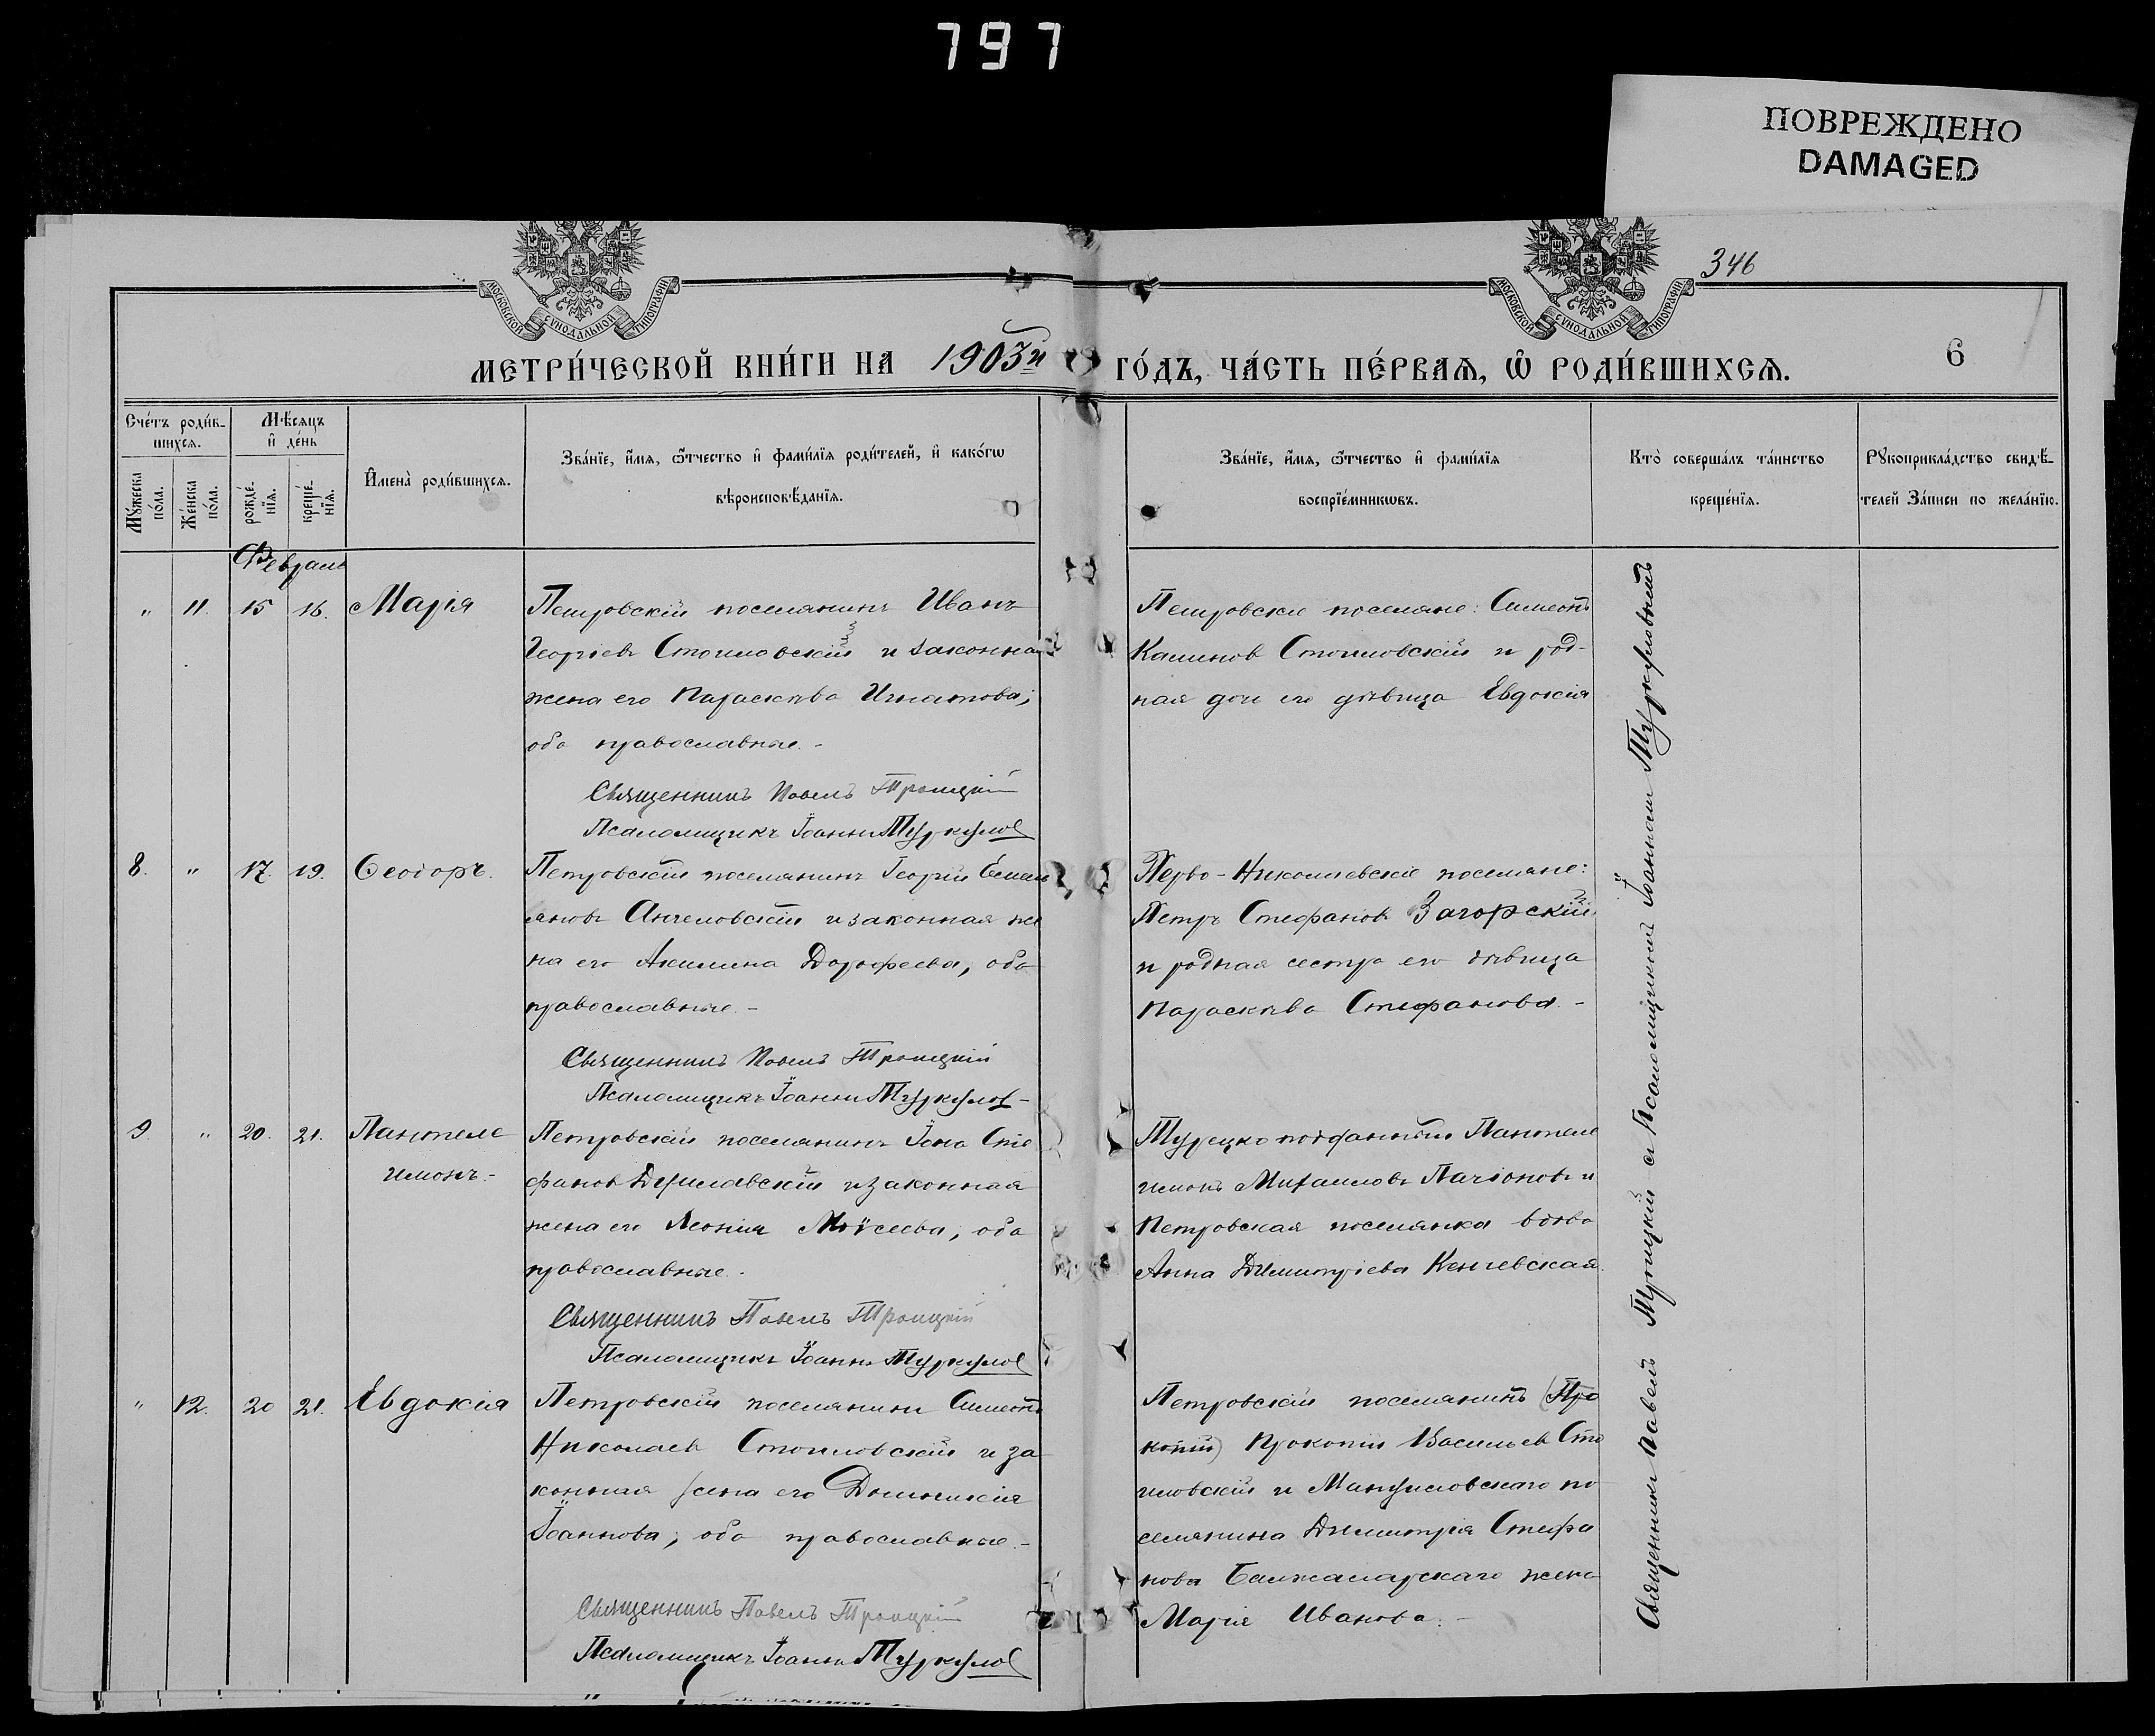 797
ПОВРЕЖДЕНО
DAMAGED
346
МОСКОВСКОЙ СѴНОДАЛЬНОЙ ТИПОГРАФІИ
МОСКОВСКОЙ СѴНОДАЛЬНОЙ ТИПОГРАФІИ
МЕТРИ́ЧЕСКОЙ КНИ́ГИ НА 1903й ГО́ДЪ, ЧА́СТЬ ПЕ́РВАѦ, Ѽ РОДИ́ВШИХСѦ.
6
Сче́тъ роди́в-
шихсѧ.
Мѣ́сѧцъ
и҆ де́нь
Мꙋ́жеска
по́ла.
Же́нска
по́ла.
рожде́-
нїѧ.
креще́-
нїѧ.
И҆мена̀ роди́вшихсѧ.
Зва́нїе, и҆́мѧ, ѻ҆́тчество и҆ фами́лїѧ роди́телей, и҆ како́гѡ
вѣроисповѣ́данїѧ.
Зва́нїе, и҆́мѧ, ѻ҆́тчество и҆ фами́лїѧ
воспрїе́мникѡвъ.
Кто̀ соверша́лъ та́инство
креще́нїѧ.
Рꙋкоприкла́дство свидѣ́-
телей за́писи по жела́нїю.
Февраль
" 11. 15 16. Марія
Петровскій поселянинъ Иванъ
Георгіевъ Стоиловскій и законная
жена его Параскева Игнатова;
оба православные. -
Священникъ Павелъ Троицкій
Псаломщикъ Іоаннъ Туркулов
Петровскіе поселяне: Симеонъ
Калинов Стоиловскій и род-
ная дочь его дѣвица Евдокія
8. " 17. 19. Ѳеодоръ.
Петровскій поселянинъ Георгій Емель
яновъ Ангеловскій и законная же
на его Акилина Дорофеева, оба
православные. -
Священникъ Павелъ Троицкій
Псаломщикъ Іоаннъ Туркулов -
Перво-Николаевскіе поселяне:
Петръ Стефановъ Загорскій
и родная сестра его дѣвица
Параскева Стефанова. -
9. " 20. 21. Пантеле
имонъ. -
Петровскій поселянинъ Іона Сте
фанов и законная
жена его Моѵсеева, оба
православные. -
Священникъ Павелъ Троицкій
Псаломщикъ Іоаннъ Туркулов
Турецко подданный Пантеле
имонъ Михаиловъ и
Петровская поселянка вдова
Анна Димитріева
" 12. 20 21. Евдокія
Петровскій поселянинъ Симеонъ
Николаевъ Стоиловскій и за
конная жена его Домникія
Іоаннова; оба православные. -
Священникъ Павелъ Троицкій
Псаломщикъ Іоаннъ Туркулов
Петровскій поселянинъ (Про
копій) Прокопій Васильевъ Сто
иловскій и по
селянина Димитрія Стефа
нова жена
Марія Иванова. -
Священникъ Павелъ Троицкій съ Псаломщикомъ Іоанномъ Туркуловымъ